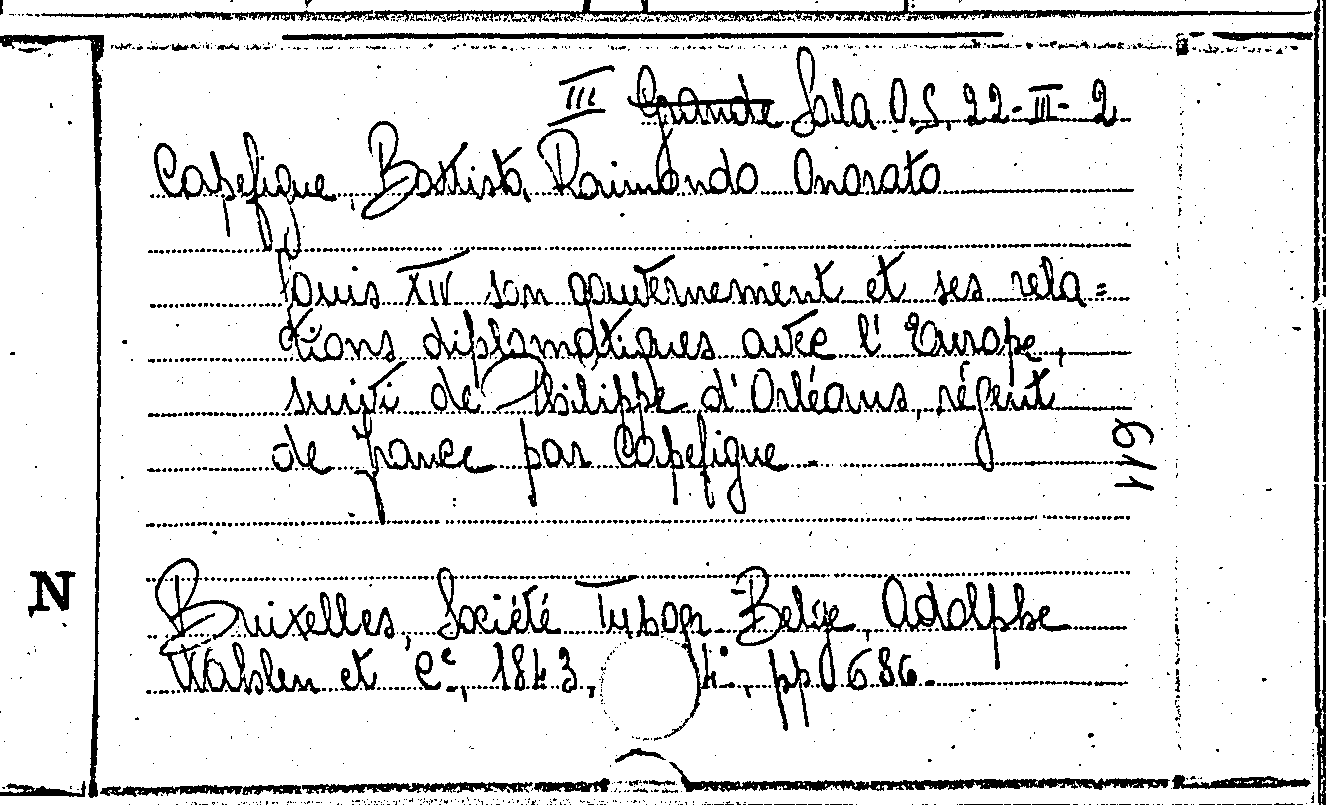 III Grande Sala O.S. 22-III-2
Capefigue, Battista Raimondo Onorato
Louis XIV son gouvernement et ses rela=
tions diplomatiques avec l'Europe,
suivi de Philippe d'Orléans, régent
de france par Capefigue.
119
N
Bruxelles, Société Typogr. Belge, Adolphe
Wahlen et Cᵉ., 1843, 4°., pp 686.